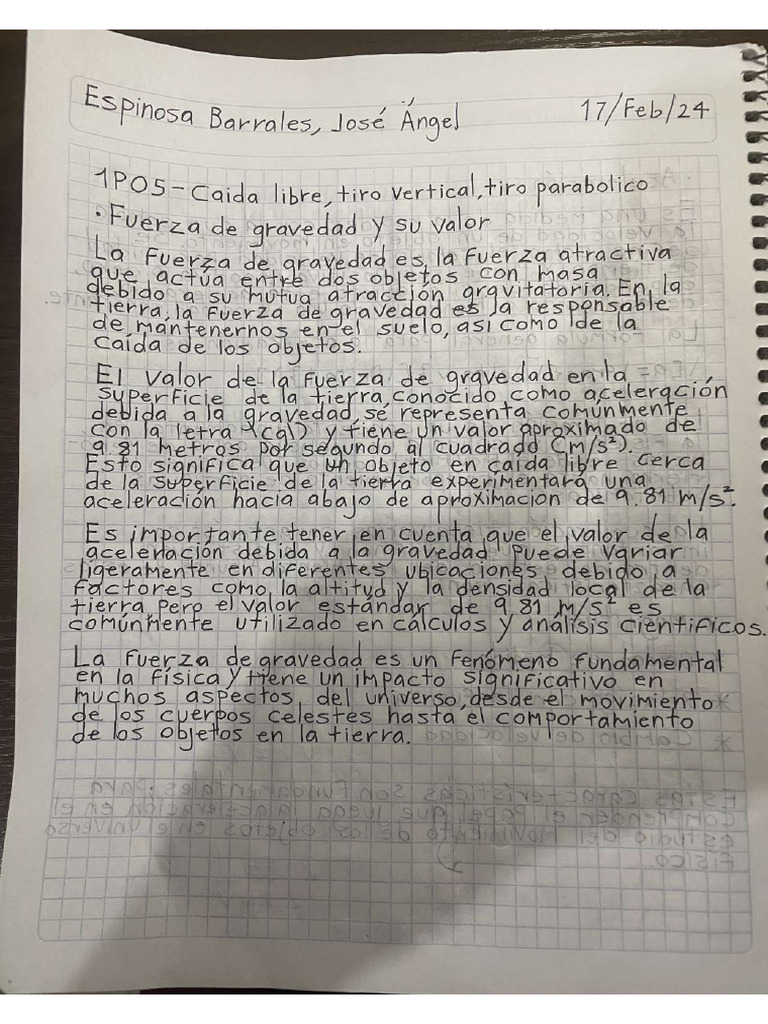 Espinosa Barrales, José Ángel 17/Feb/24
1P05-Caida libre, tiro vertical, tiro parabolico
• Fuerza de gravedad y su valor
La fuerza de gravedad es la fuerza atractiva
que actúa entre dos objetos con masa
debido a su mutua atracción gravitatoria. En la
tierra, la fuerza de gravedad es la responsable
de mantenernos en el suelo, asi como de la
caida de los objetos.
El valor de la fuerza de gravedad en la
superficie de la tierra, conocido como aceleración
debida a la gravedad, se representa comúnmente
con la letra \(g\) y tiene un valor aproximado de
9.81 metros por segundo al cuadrado (m/s²).
Esto significa que un objeto en caida libre cerca
de la superficie de la tierra experimentará una
aceleración hacia abajo de aproximacion de 9.81 m/s².
Es importante tener en cuenta que el valor de la
aceleración debida a la gravedad puede variar
ligeramente en diferentes ubicaciones debido a
factores como la altitud y la densidad local de la
tierra pero el valor estándar de 9.81 m/s² es
comúnmente utilizado en cálculos y análisis cientificos.
La fuerza de gravedad es un fenómeno fundamental
en la física y tiene un impacto significativo en
muchos aspectos del universo, desde el movimiento
de los cuerpos celestes hasta el comportamiento
de los objetos en la tierra.